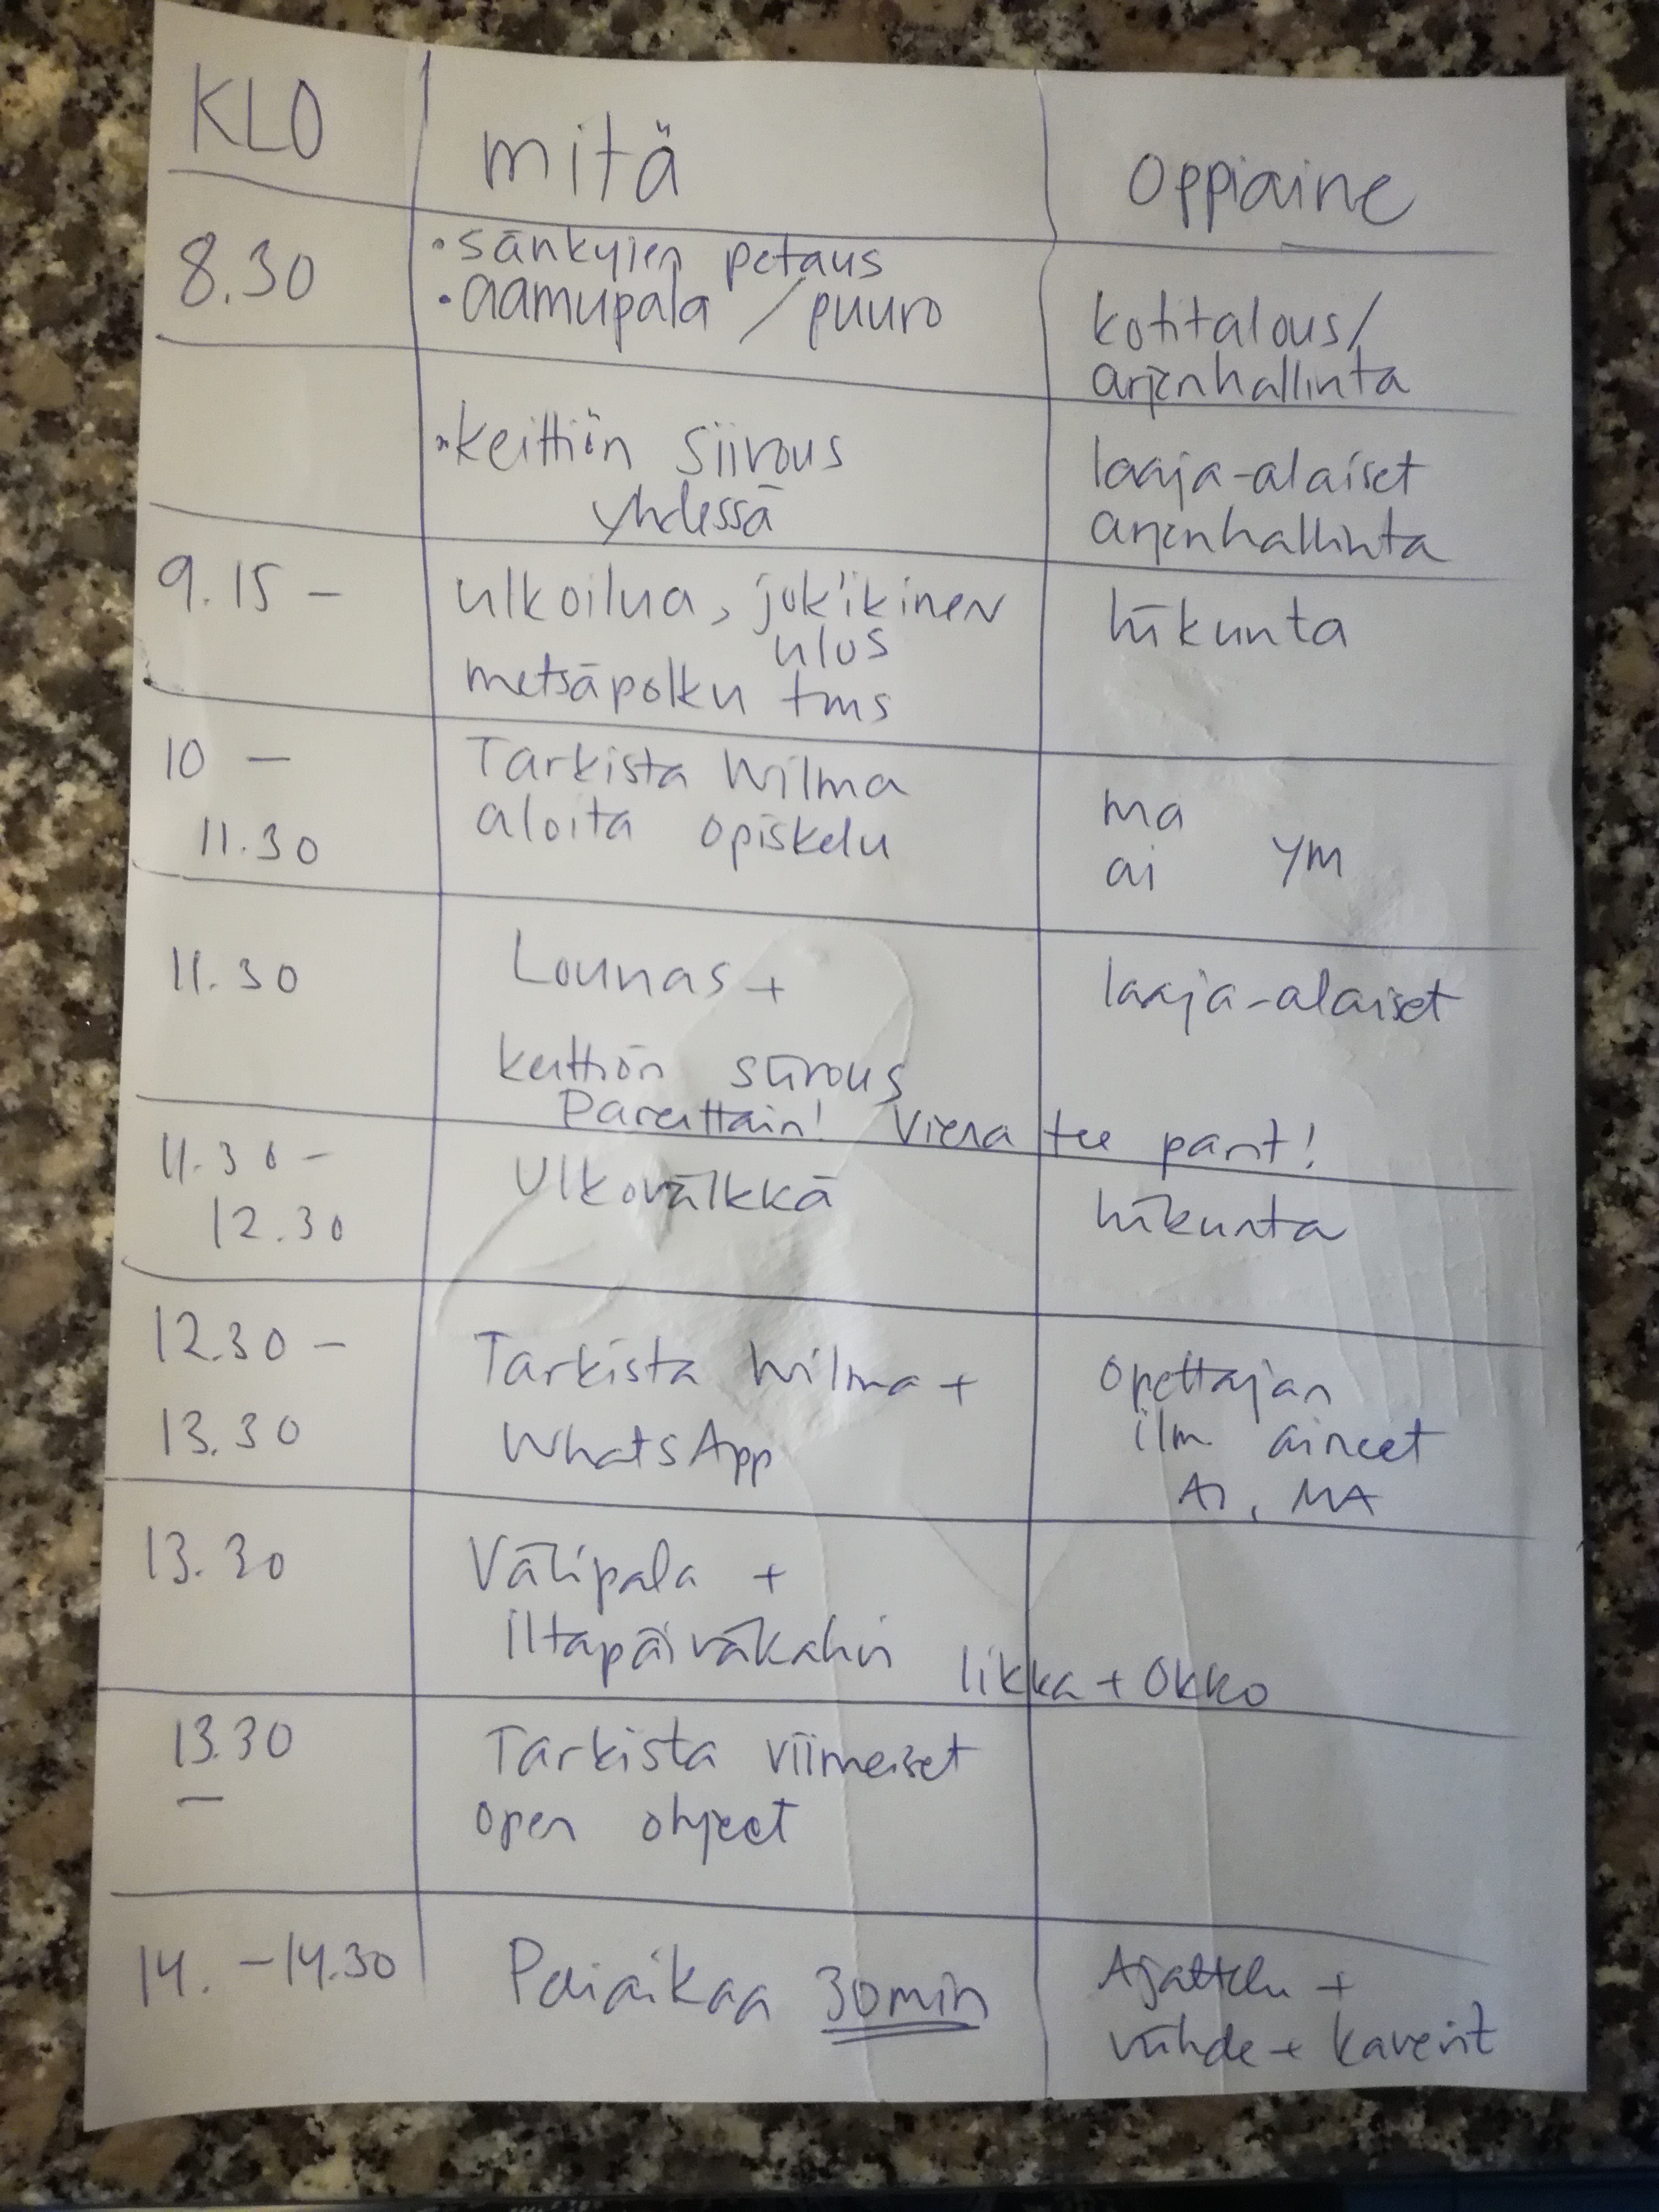 KLO mitä oppiaine
8.30 • sänkyjen petaus
• aamupala / puuro kotitalous/
arjenhallinta
• keittiön siivous laaja-alaiset
yhdessä arjenhallinta
9.15 – ulkoilua, jok'ikinen liikunta
ulos
metsäpolku tms
10 – Tarkista Wilma ma
11.30 aloita opiskelu ai ym
11.30 Lounas + laaja-alaiset
keittiön siivous
Pareittain! Viena tee parit!
11.30 – Ulkovälkkä liikunta
12.30
12.30 – Tarkista Wilma + opettajan
13.30 WhatsApp ilm. aineet
AI, MA
13.30 Välipala +
iltapäiväkahvi Iikka + Okko
13.30 Tarkista viimeiset
– open ohjeet
14. – 14.30 Peliaikaa 30 min Ajattelu +
viihde + kaverit